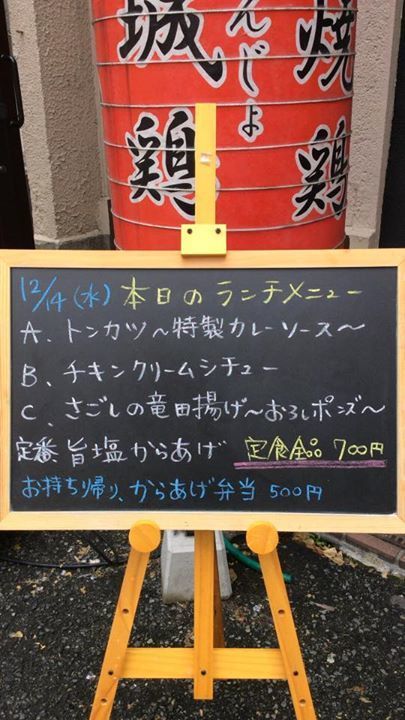 城鶏
んじょ
焼鶏
12/14(水) 本日のランチメニュー
A、トンカツ〜特製カレーソース〜
B、チキンクリームシチュー
C、さごしの竜田揚げ〜おろしポンズ〜
定番 旨塩からあげ 定食全品 700円
お持ち帰り、からあげ弁当 500円